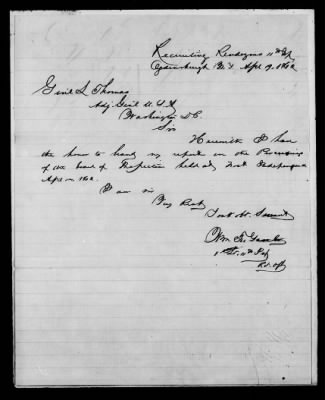 Recruiting Rendezvous 11th Inf
Ogdensburgh N.Y. Apr 19. 1862
Genl L Thomas
Adj Genl U.S.A
Washington D.C.
Sir
Herewith I have
the honor to hand my report on the
of the board of Inspection held at Fort
Apr 1862.
I am sir
Very Rest
Your Ob. Servant
Wm
1st Lt. 11th Inf